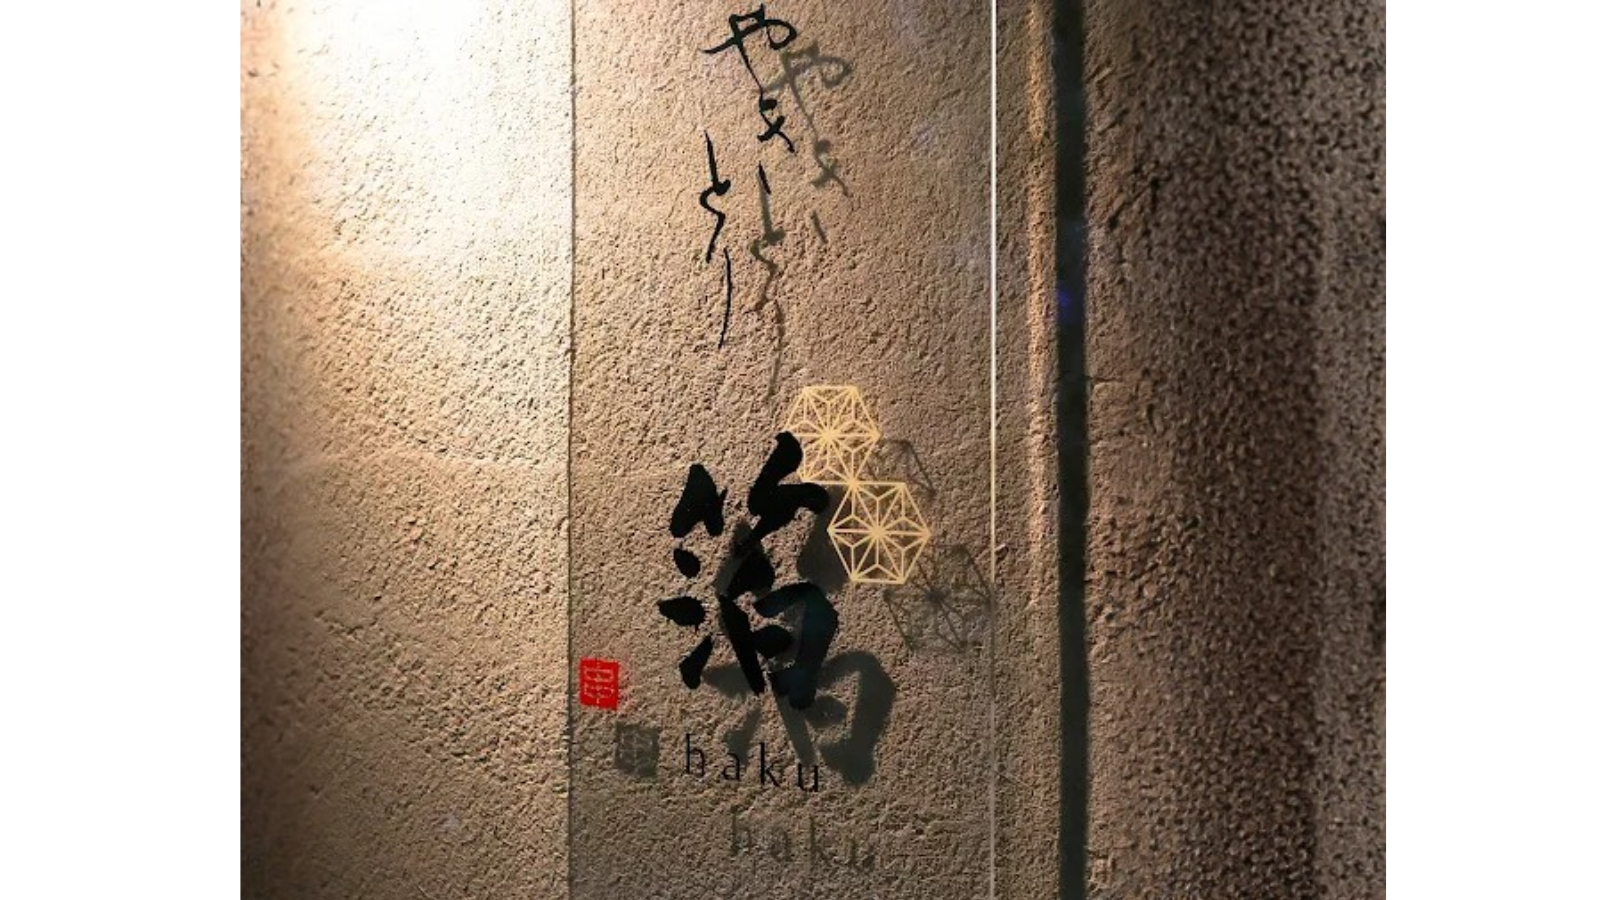 やき
とり
箔
haku